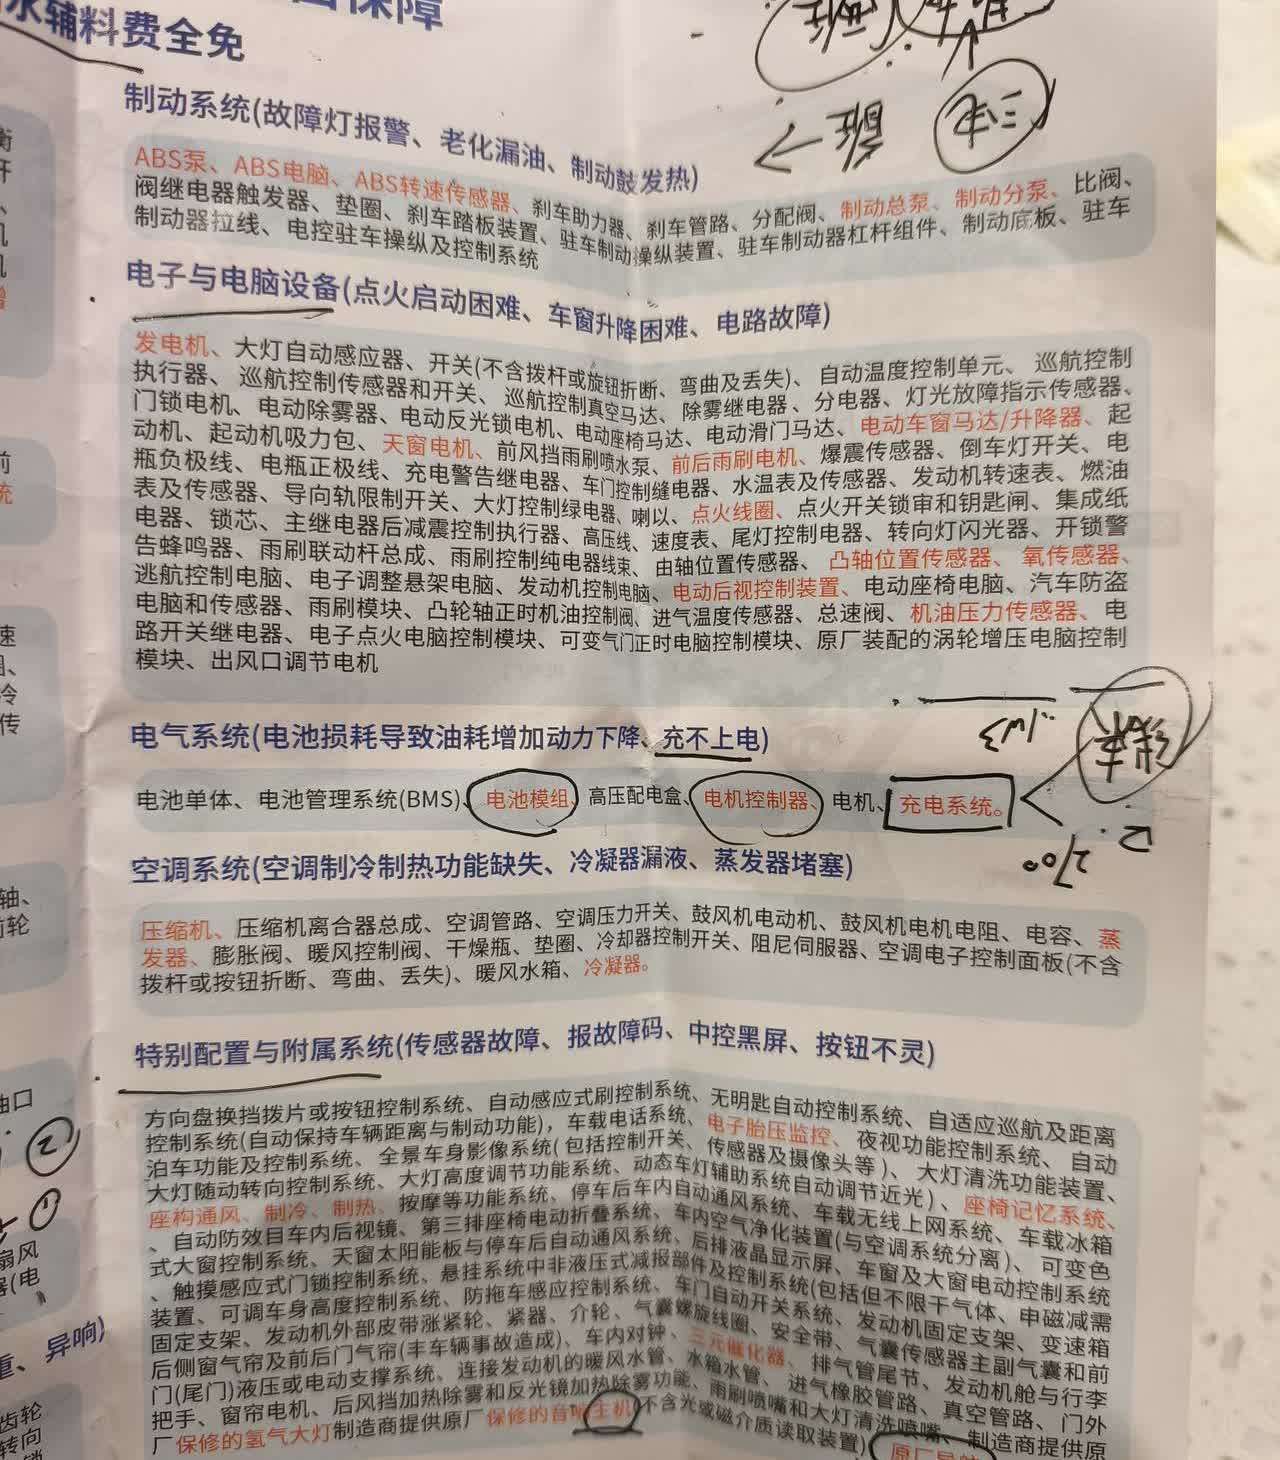 水辅料费全免
制动系统(故障灯报警、老化漏油、制动鼓发热)
ABS泵、ABS电脑、ABS转速传感器、刹车助力器、刹车管路、分配阀、制动总泵、制动分泵、比阀、
阀继电器触发器、垫圈、刹车踏板装置、驻车制动操纵装置、驻车制动器杠杆组件、制动底板、驻车
制动器拉线、电控驻车操纵及控制系统
电子与电脑设备(点火启动困难、车窗升降困难、电路故障)
发电机、大灯自动感应器、开关(不含拨杆或旋钮折断、弯曲及丢失)、自动温度控制单元、巡航控制
执行器、巡航控制传感器和开关、巡航控制真空马达、除雾继电器、分电器、灯光放障指示传感器、
门锁电机、电动除雾器、电动反光锁电机、电动座椅马达、电动滑门马达、电动车窗马达/升降器、起
动机、起动机吸力包、天窗电机、前风挡雨刷喷水泵、前后雨刷电机、爆震传感器、倒车灯开关、电
瓶负极线、电瓶正极线、充电警告继电器、车门控制缝电器、水温表及传感器、发动机转速表、燃油
表及传感器、导向轨限制开关、大灯控制绿电器、喇以、点火线圈、点火开关锁审和钥匙闸、集成纸
电器、锁芯、主继电器后减震控制执行器、高压线、速度表、尾灯控制电器、转向灯闪光器、开锁警
告蜂鸣器、雨刷联动杆总成、雨刷控制纯电器线束、由轴位置传感器、凸轴位置传感器、氧传感器、
逃航控制电脑、电子调整悬架电脑、发动机控制电脑、电动后视控制装置、电动座椅电脑、汽车防盗
电脑和传感器、雨刷模块、凸轮轴正时机油控制阀、进气温度传感器、总速阀、机油压力传感器、电
路开关继电器、电子点火电脑控制模块、可变气门正时电脑控制模块、原厂装配的涡轮增压电脑控制
模块、出风口调节电机
电气系统(电池损耗导致油耗增加动力下降、充不上电)
电池单体、电池管理系统(BMS)、电池模组、高压配电盒、电机控制器、电机、充电系统。
空调系统(空调制冷制热功能缺失、冷凝器漏液、蒸发器堵塞)
压缩机、压缩机离合器总成、空调管路、空调压力开关、鼓风机电动机、鼓风机电机电阻、电容、蒸
发器、膨胀阀、暖风控制阀、干燥瓶、垫圈、冷却器控制开关、阻尼伺服器、空调电子控制面板(不含
拨杆或按钮折断、弯曲、丢失)、暖风水箱、冷凝器。
特别配置与附属系统(传感器故障、报故障码、中控黑屏、按钮不灵)
方向盘换挡拨片或按钮控制系统、自动感应式刷控制系统、无明匙自动控制系统、自适应巡航及距离
控制系统(自动保持车辆距离与制动功能)，车载电话系统、电子胎压监控、夜视功能控制系统、自动
泊车功能及控制系统、全景车身影像系统(包括控制开关、传感器及摄像头等)、大灯清洗功能装置、
大灯随动转向控制系统、大灯高度调节功能系统、动态车灯辅助系统自动调节近光)、座椅记忆系统、
座构通风、制冷、制热、按摩等功能系统、停车后车内自动通风系统、车载无线上网系统、车载冰箱
、自动防效目车内后视镜、第三排座椅电动折叠系统、车内空气净化装置(与空调系统分离)、可变色
式大窗控制系统、天窗太阳能板与停车后自动通风系统、后排液晶显示屏、车窗及大窗电动控制系统
、触摸感应式门锁控制系统、悬挂系统中非液压式减报部件及控制系统(包括但不限干气体、申磁减需
装置、可调车身高度控制系统、防拖车感应控制系统、车门自动开关系统、发动机固定支架、变速箱
固定支架、发动机外部皮带涨紧轮、紧器、介轮、气囊螺旋线圈、安全带、气囊传感器主副气囊和前
后侧窗气帘及前后门气帘(丰车辆事故造成)、车内对钟、三元催化器、排气管尾节、发动机舱与行李
门(尾门)液压或电动支撑系统、连接发动机的暖风水管、水箱水管、进气橡胶管路、真空管路、门外
把手、窗帘电机、后风挡加热除雾和反光镜加热除雾功能、雨刷喷嘴和大灯清洗喷嘴、制造商提供原
厂保修的氢气大灯制造商提供原厂保修的音响主机(不含光或磁介质读取装置)